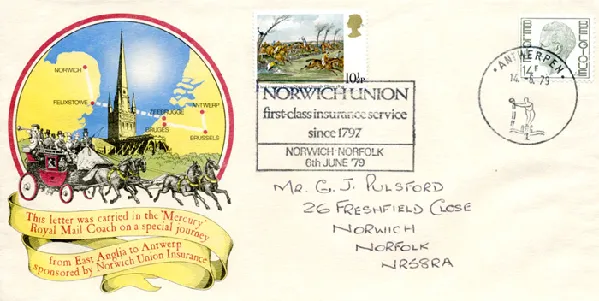 NORWICH
FELIXSTOWE
ZEEBRUGGE
ANTWERP
BRUGES
BRUSSELS
This letter was carried in the 'Mercury'
Royal Mail Coach on a special journey
from East Anglia to Antwerp
sponsored by Norwich Union Insurance
10½P
NORWICH UNION
first-class insurance service
since 1797
NORWICH·NORFOLK
6th JUNE '79
BELGIQUE
14F
ANTWERPEN
Mr. G. J. Pulsford
26 Freshfield Close
Norwich
Norfolk
NR5 8RA